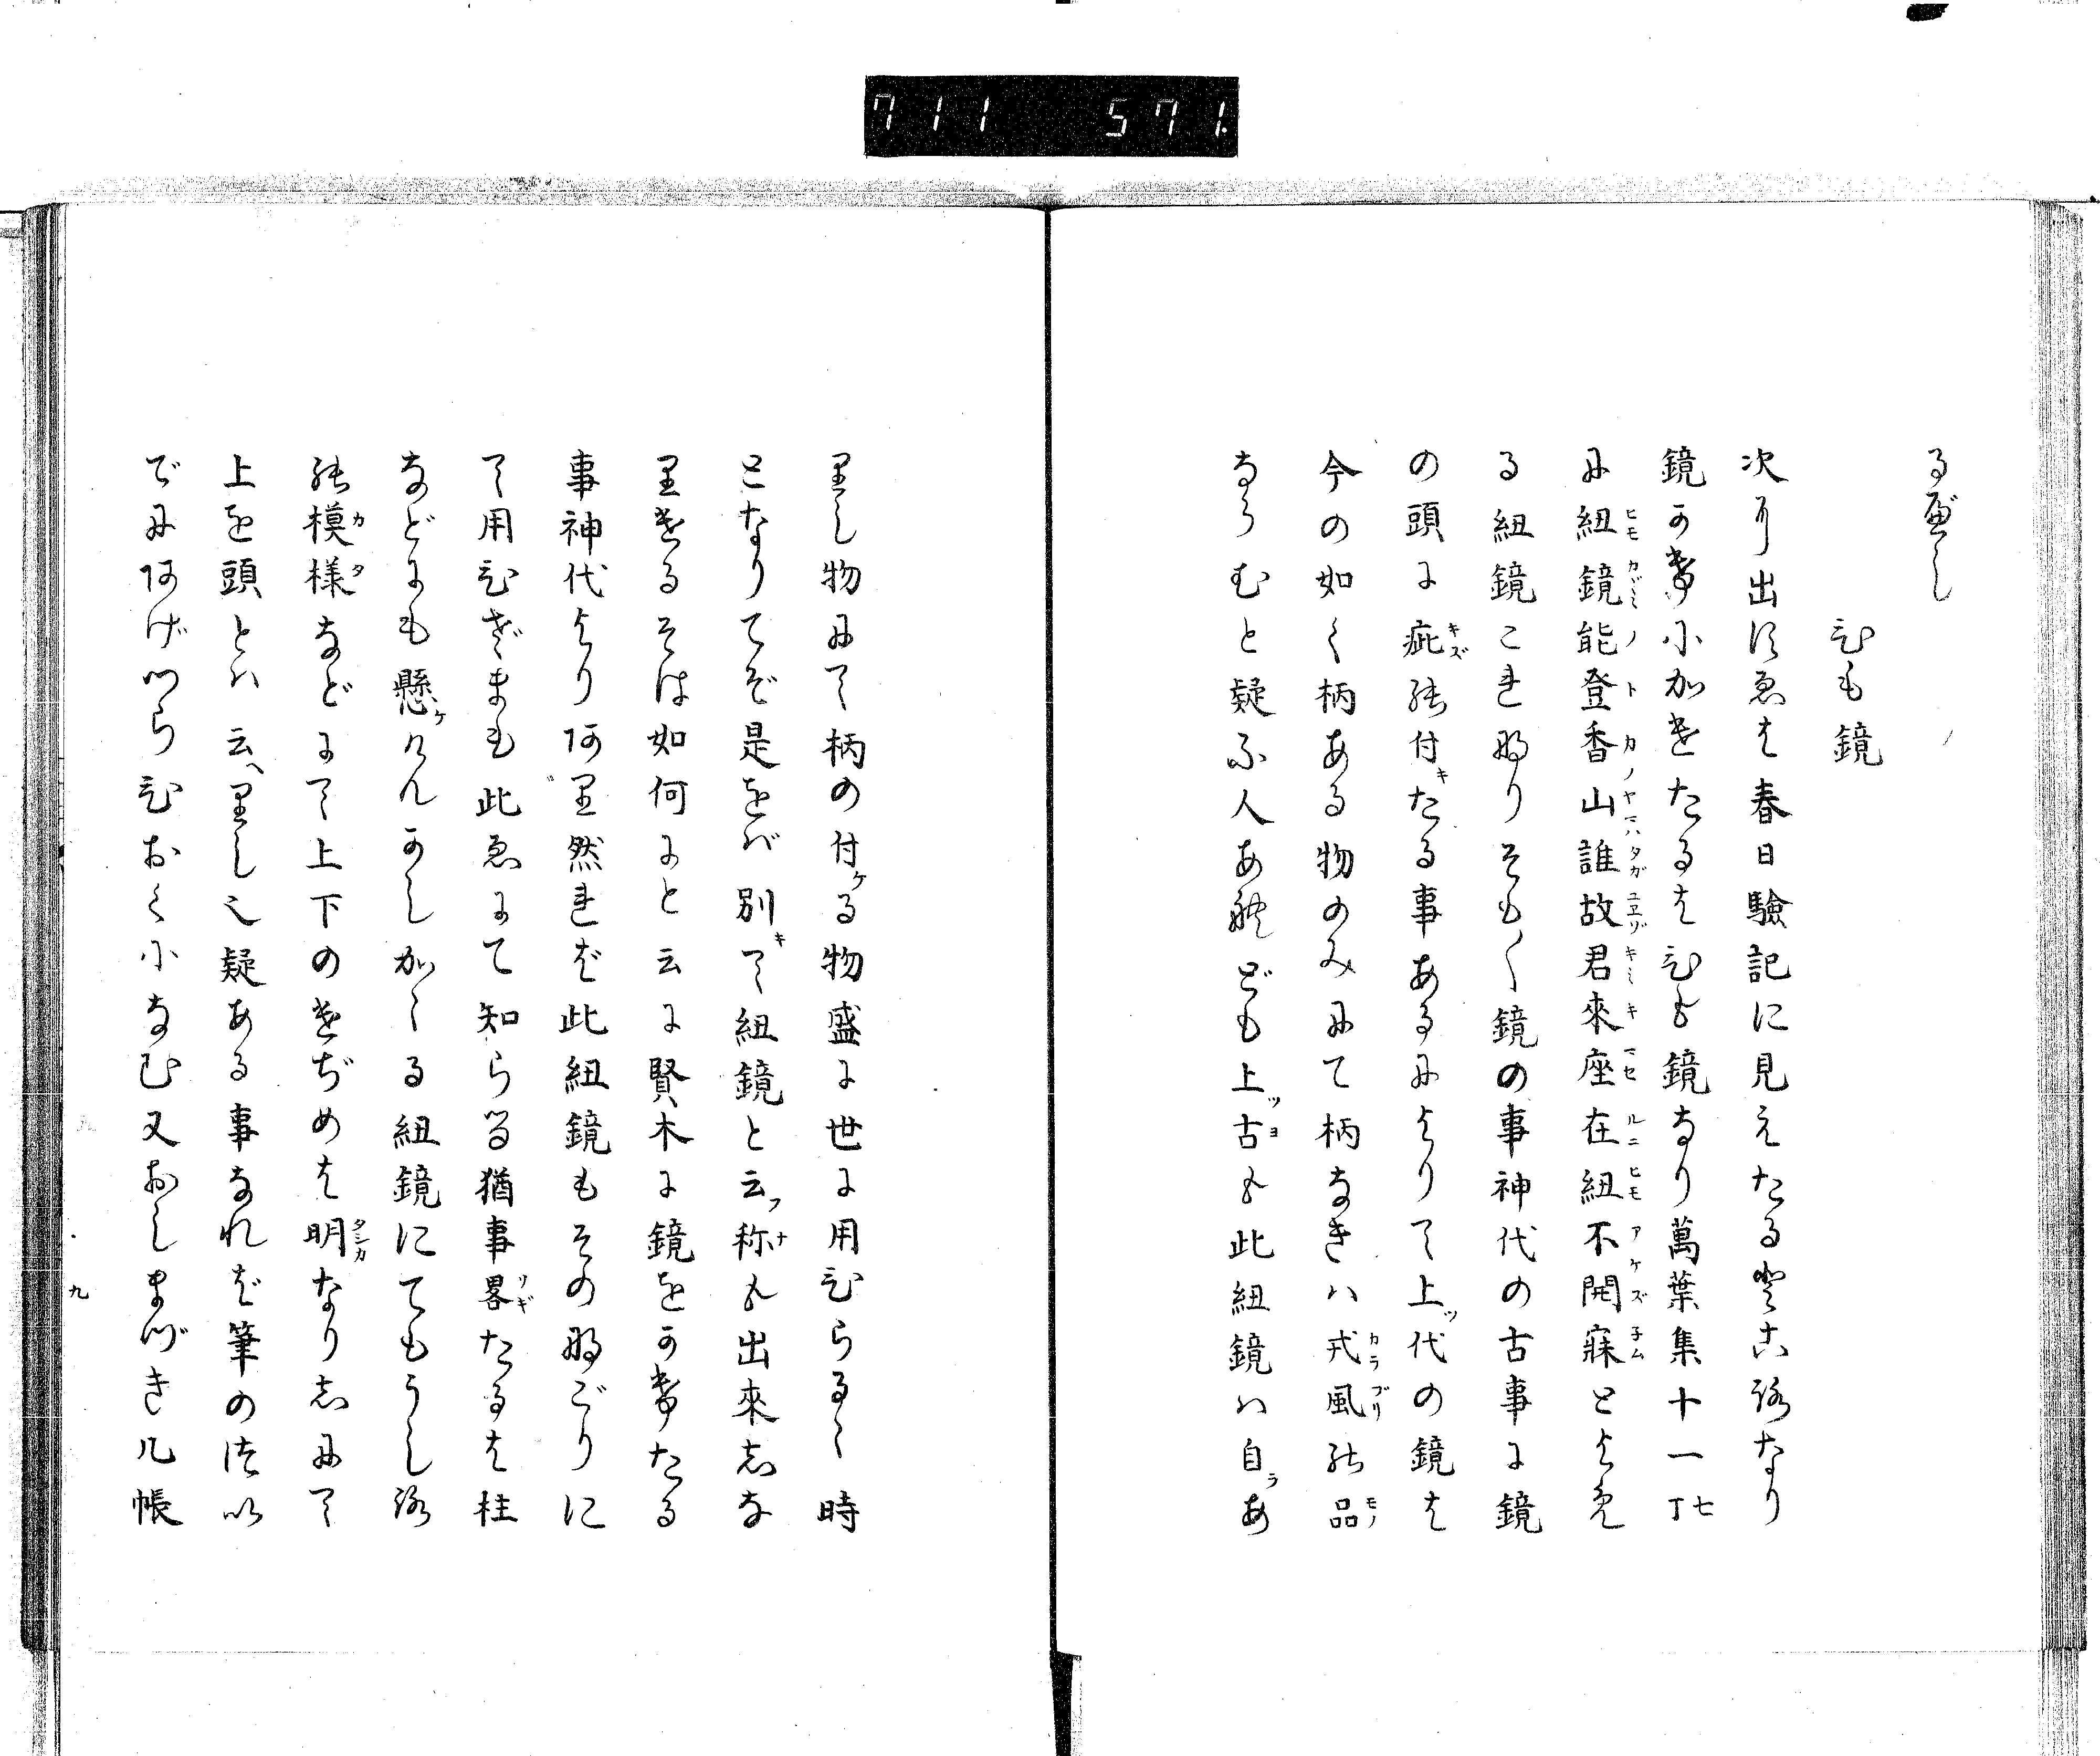 711 571.
るべし
ひも鏡
次に出せるゑは春日驗記に見えたるところなり
鏡かけにかけたるはひも鏡なり萬葉集十一七丁
に紐鏡能登香山誰故君來座在紐不開寐とよめ
る紐鏡これなりそも〱鏡の事神代の古事に鏡
の頭に疵の付たる事あるによりて上代の鏡は
今の如く柄ある物のみにて柄なきハ戎風の品
ならむと疑ふ人あれども上古も此紐鏡ハ自あ
りし物にて柄の付る物盛に世に用ひらるゝ時
となりてぞ是をバ別て紐鏡と云称も出來しな
りけるそは如何にと云に賢木に鏡をかけたる
事神代よりあり然れば此紐鏡もその那ごりに
て用ひざまも此ゑにて知らる猶事畧たるは柱
などにも懸けんかしかゝる紐鏡にてもうしろ
の模様などにて上下のけぢめは明なりしにて
上を頭とハ云へりし也疑ある事なれば筆の次
でにあげつらひおくになむ又おしまづき几帳
九